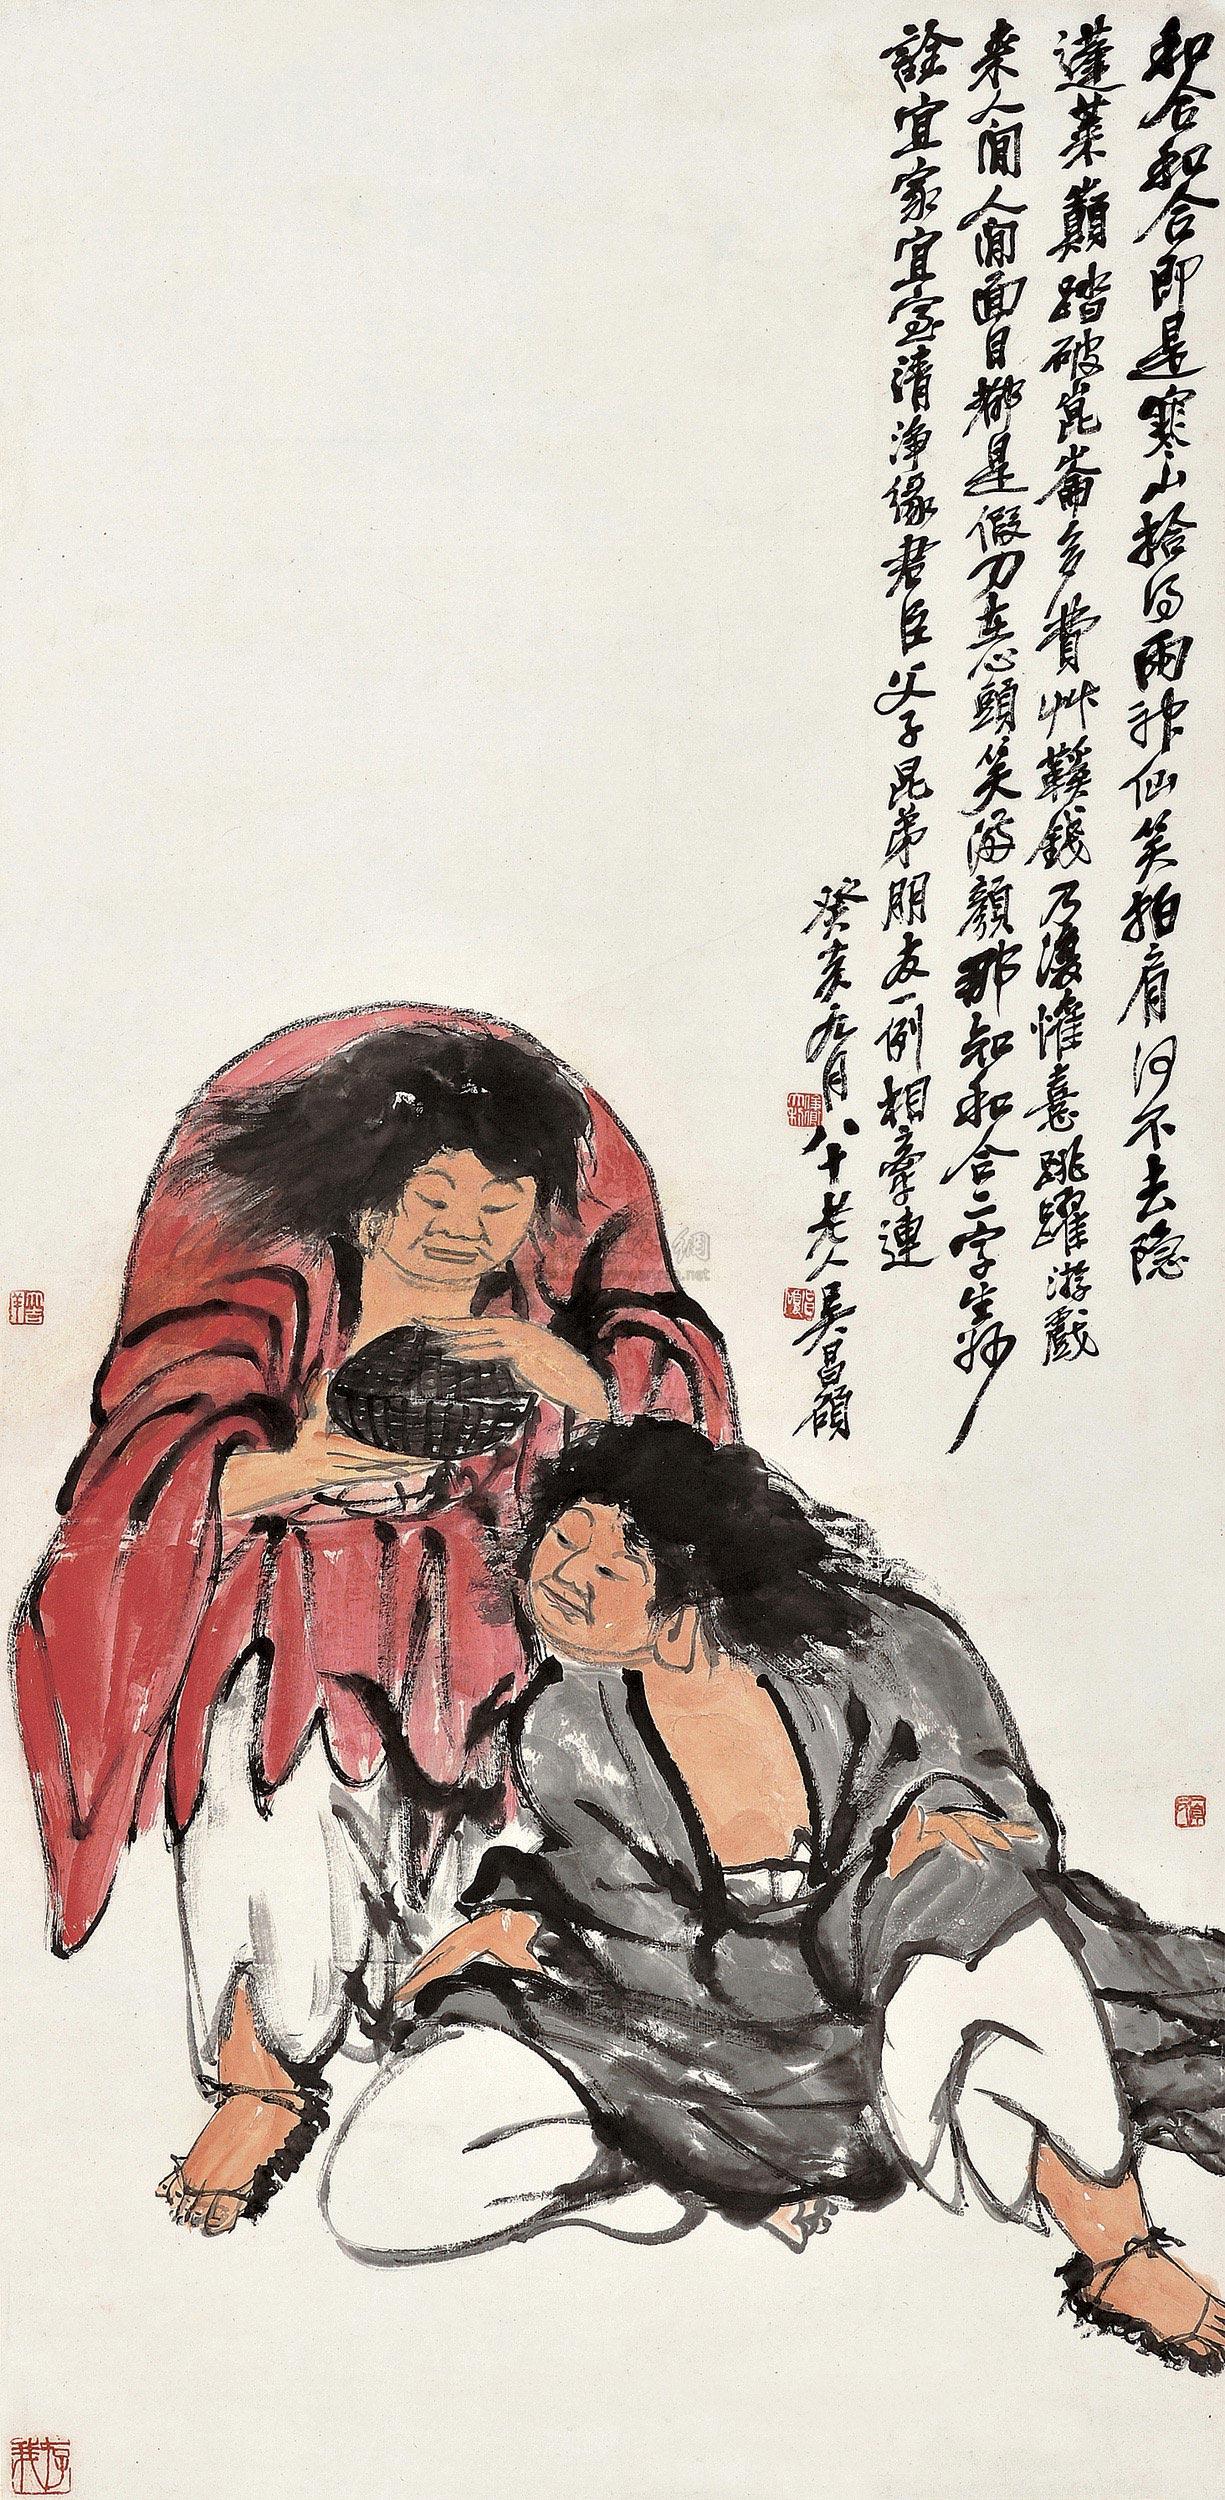 和合和合即是寒山拾得兩神仙笑拍肩何不去隐
蓬萊巔踏破崑崙多費艸鞵錢乃復懽憙跳躍游戲
来人間人間面目都是假刀在心頭笑滿顏那知和合二字生妙
詮宜家宜室清浄緣君臣父子昆弟朋友一例相牽連
癸亥九月八十老人吴昌碩